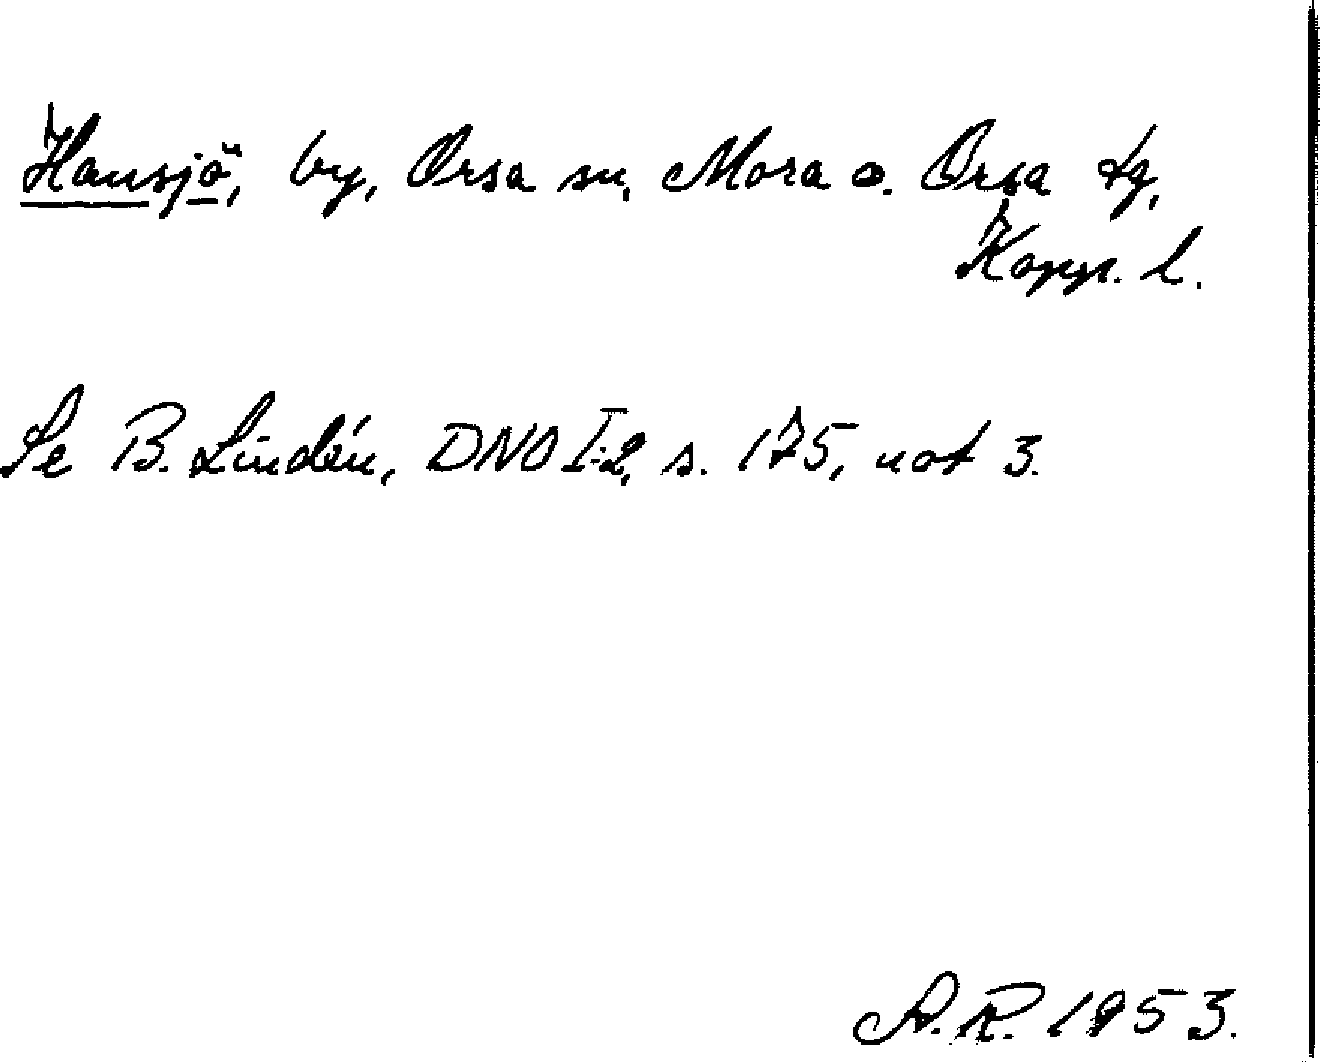 Hansjö, by, Orsa sn, Mora o. Orsa tg,
Kopp. l.
Se B. Lindén, DNO I:2, s. 175, not 3.
A.R. 1953.